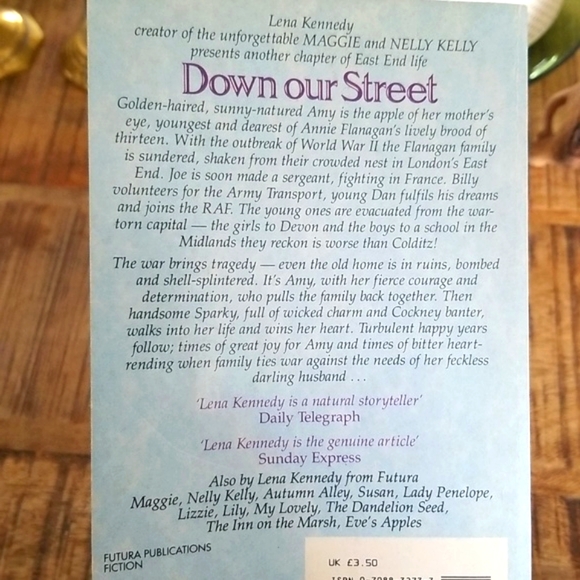 Lena Kennedy
creator of the unforgettable MAGGIE and NELLY KELLY
presents another chapter of East End life
Down our Street
Golden-haired, sunny-natured Amy is the apple of her mother's
eye, youngest and dearest of Annie Flanagan's lively brood of
thirteen. With the outbreak of World War II the Flanagan family
is sundered, shaken from their crowded nest in London's East
End. Joe is soon made a sergeant, fighting in France. Billy
volunteers for the Army Transport, young Dan fulfils his dreams
and joins the RAF. The young ones are evacuated from the war-
torn capital — the girls to Devon and the boys to a school in the
Midlands they reckon is worse than Colditz!
The war brings tragedy — even the old home is in ruins, bombed
and shell-splintered. It's Amy, with her fierce courage and
determination, who pulls the family back together. Then
handsome Sparky, full of wicked charm and Cockney banter,
walks into her life and wins her heart. Turbulent happy years
follow; times of great joy for Amy and times of bitter heart-
rending when family ties war against the needs of her feckless
darling husband . . .
'Lena Kennedy is a natural storyteller'
Daily Telegraph
'Lena Kennedy is the genuine article'
Sunday Express
Also by Lena Kennedy from Futura
Maggie, Nelly Kelly, Autumn Alley, Susan, Lady Penelope,
Lizzie, Lily, My Lovely, The Dandelion Seed,
The Inn on the Marsh, Eve's Apples
FUTURA PUBLICATIONS
FICTION
UK £3.50